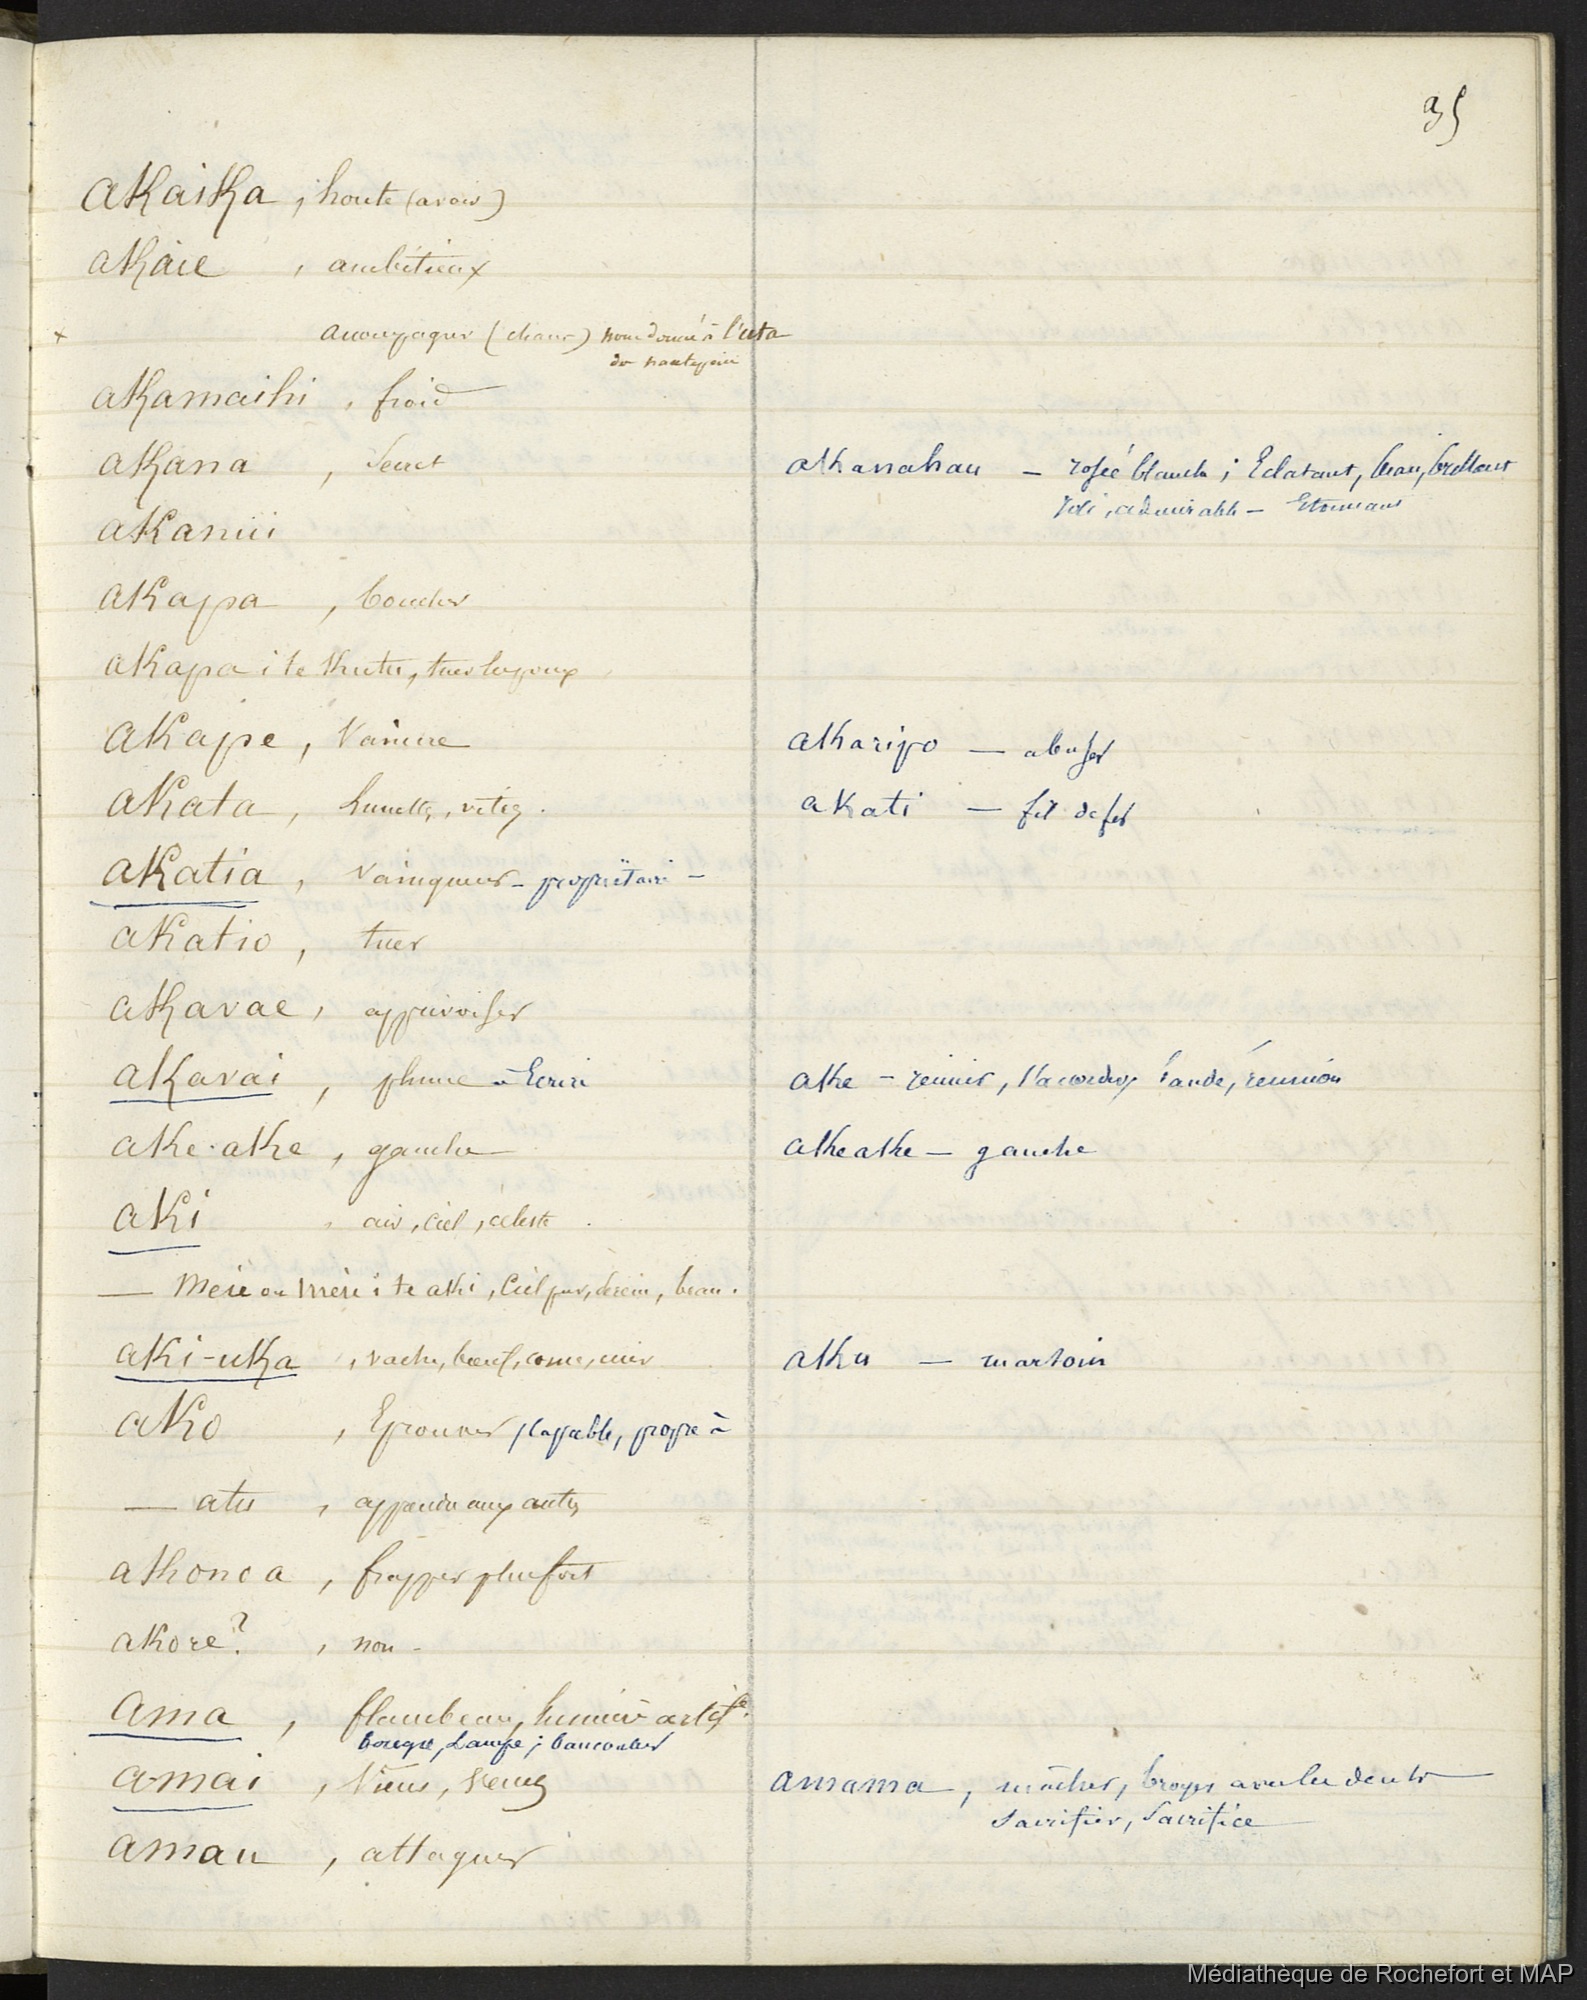 35
akaika, honte (avoir)
akaie, ambitieux
x accompagner (chans) nom donné à l'uta
de
akamaihi, froid
akana, secret
akanahau — rosée blanche; Eclatant, beau, brillant
joli, admirable — Etonnant
akaniii
akapa, boucher
akapa i te kutu, tuer les poux
akape, vaincre
akaripo — abuser
akata, lunettes, vitres.
akati — fil de fer
akatia, vainqueur – propriétaire –
akatio, tuer
akavae, apprivoiser
akavai, plume à Ecrire
ake – réunir, s'accorder, bande, réunion
ake-ake, gauche
akeake — gauche
aki, air, ciel, céleste.
— meie ou mere i te aki, Ciel pur, serein, beau.
aki-uka, vache, bœuf, corne, cuir
aku — marsouin
ako, Eprouver, capable, propre à
— atu, apprendre aux autres
akonoa, frapper plus fort
akore?, non –
ama, flambeau, lumière artifle.
bougie, Lampe;
amai, Viens, Venez
amama, mâcher, broyer avec les dents —
Sacrifier, Sacrifice
amau, attaquer
Médiathèque de Rochefort et MAP